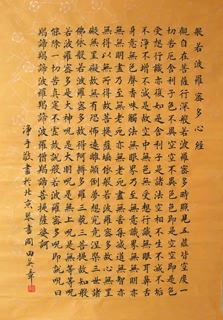 般若波羅蜜多心經
觀自在菩薩行深般若波羅蜜多時照見五蘊皆空度一
切苦厄舍利子色不異空空不異色色即是空空即是色
受想行識亦復如是舍利子是諸法空相不生不滅不垢
不淨不增不減是故空中無色無受想行識無眼耳鼻舌
身意無色聲香味觸法無眼界乃至無意識界無無明亦
無無明盡乃至無老死亦無老死盡無苦集滅道無智亦
無得以無所得故菩提薩埵依般若波羅蜜多故心無罣
礙無罣礙故無有恐怖遠離顛倒夢想究竟涅槃三世諸
佛依般若波羅蜜多故得阿耨多羅三藐三菩提故知般
若波羅蜜多是大神呪是大明呪是無上呪是無等等呪
能除一切苦真實不虛故說般若波羅蜜多呪即說呪曰
揭諦揭諦波羅揭諦波羅僧揭諦菩提薩婆訶
淨手敬書於北京 田英章